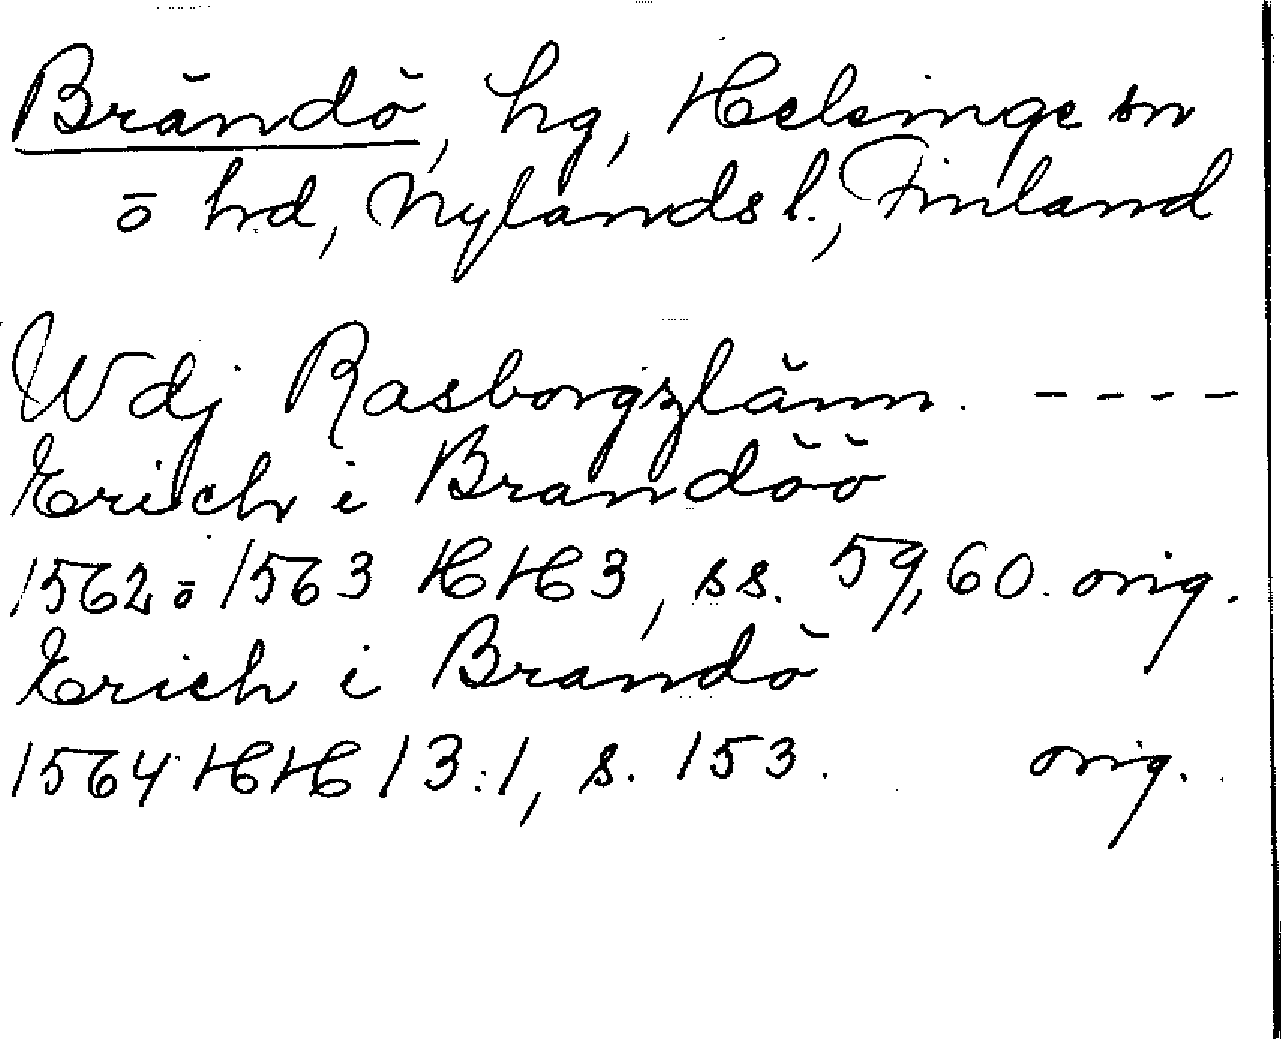 Brändö, hg, Helsinge sn
ō hrd, Nylands l., Finland
Wdj Rasborgzlänn. - - - -
Erich i Brandöö
1562 ō 1563 HH 3, ss. 59, 60. orig.
Erich i Brandö
1564 HH 13:1, s. 153. orig.